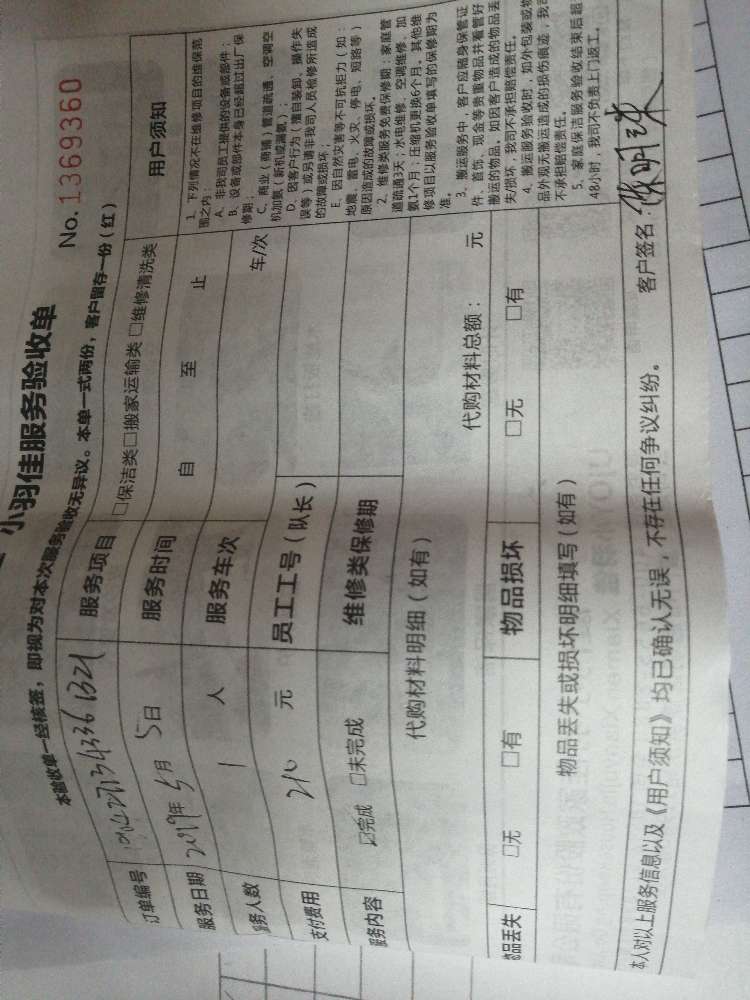 小羽佳服务验收单
No. 1369360
本验收单一经核签，即视为对本次服务验收无异议。本单一式两份，客户留存一份（红）
订单编号
服务项目 □保洁类 □搬家运输类 □维修清洗类
服务日期 2019年5月5日
服务时间 自 至 止
服务人数 1 人
服务车次 车/次
支付费用 210 元
员工工号（队长）
服务内容 ☑完成 □未完成
维修类保修期
代购材料明细（如有）
代购材料总额： 元
物品丢失 □无 □有
物品损坏 □无 □有
物品丢失或损坏明细填写（如有）
用户须知
1、下列情况不在维修项目的维保范
围之内：
A、非我司员工提供的设备或部件；
B、设备或部件本身已经超过出厂保
修期；
C、商业（商铺）管道疏通、空调空
机加氨（新机或漏氨）；
D、因客户行为（擅自装卸、操作失
误等）或另请非我司人员检修所造成
的故障或损坏；
E、因自然灾害等不可抗拒力（如：
地震、雷电、火灾、停电、短路等）
原因造成的故障或损坏。
2、维修类服务免费保修期：家庭管
道疏通3天；水电维修、空调维修、加
氨1个月；压缩机更换6个月。其他维
修项目以服务验收单填写的保修期为
准。
3、搬运服务中，客户应随身保管证
件、首饰、现金等贵重物品并看管好
搬运的物品。如因客户造成的物品丢
失/损坏，我司不承担赔偿责任。
4、搬运服务验收时，如外包装或物
品外观无搬运造成的损伤痕迹，我司
不承担赔偿责任。
5、家庭保洁服务验收结束后超
48小时，我司不负责上门返工。
本人对以上服务信息以及《用户须知》均已确认无误，不存在任何争议纠纷。
客户签名：